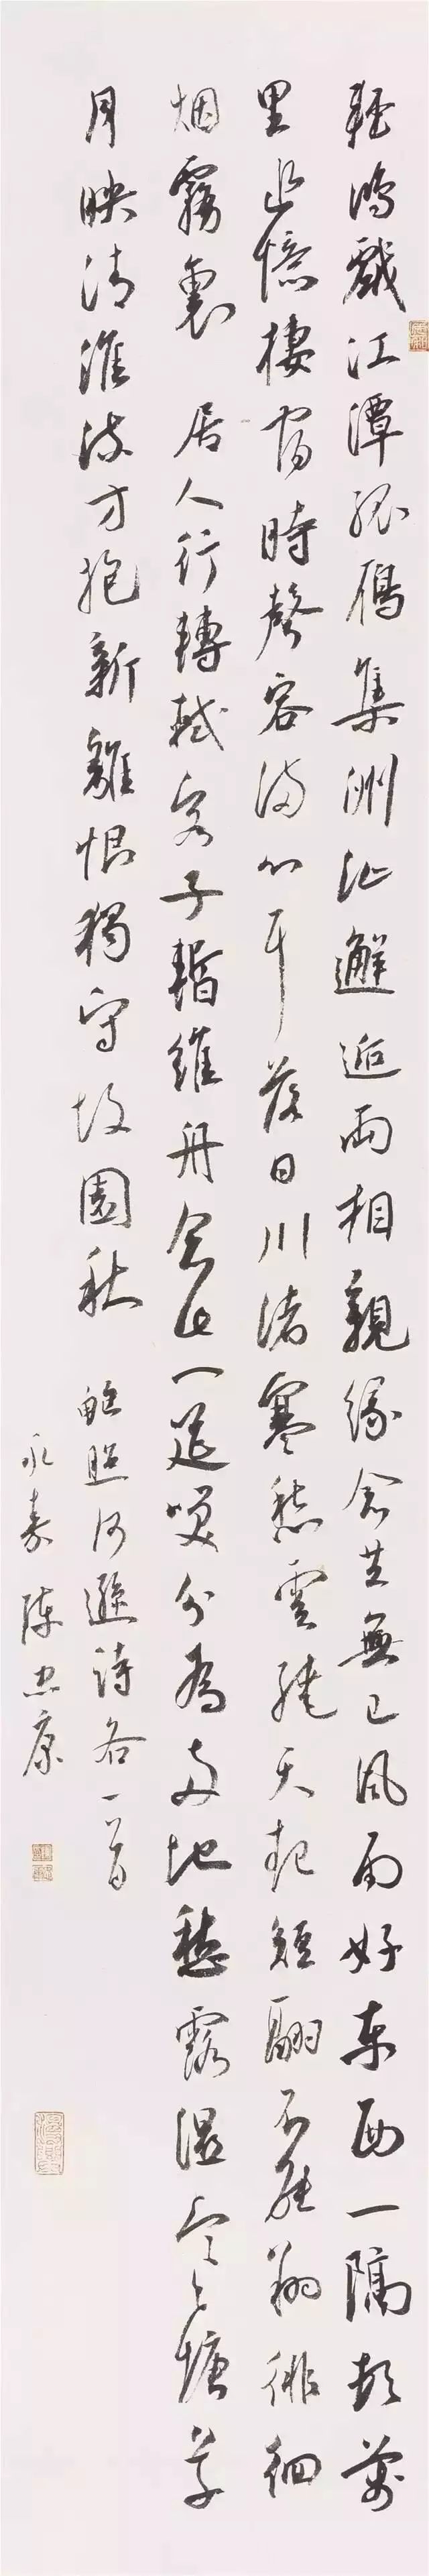 輕鴻戲江潭孤鴈集洲沚邂逅兩相親緣念共無已風雨好東西一隔頓萬
里追憶棲宿時聲容滿心耳落日川渚寒愁雲繞天起短翮不能翔徘徊
烟霧裏 居人行轉軾客子暫維舟念此一筵笑分為兩地愁露濕寒塘草
月映清淮流方抱新離恨獨守故園秋 鮑照何遜詩各一首
永嘉陳忠康